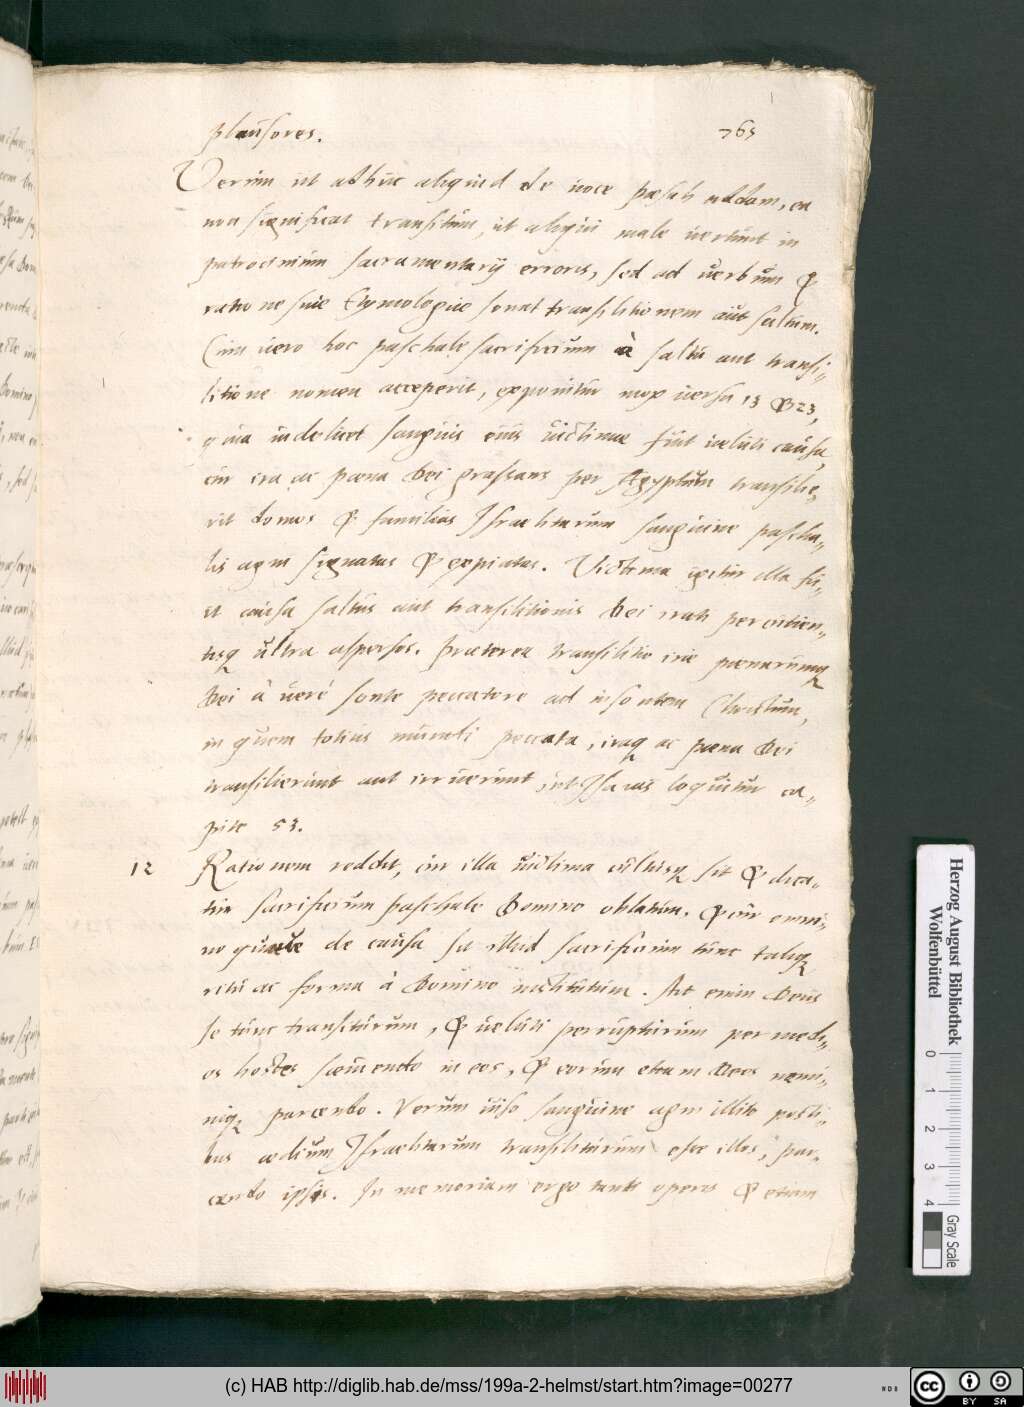 765
plausores.
Verum ut adhuc aliquid de voce pæsah addam, ea
non significat transitum, ut aliqui male vertunt in
patrocinium sacramentarij erroris, sed ad verbum &
ratione suæ Etymologiæ sonat transilitionem aut saltum.
Cum vero hoc paschale sacrificium à saltu aut transi„
litione nomen acceperit, exponitur mox versu 13 & 23,
quia videlicet sanguis eius victimæ fuit veluti causa,
cur ira ac pœna Dei grassans per Ægyptum transilie„
rit domos & familias Israelitarum sanguine pascha„
lis agni signatas & expiatas. Victima igitur illa fu„
it causa saltus aut transilitionis Dei irati percutien„
tisq ultra aspersos. Præterea transilitio iræ pœnarumq
Dei à veré sonte peccatore ad insontem Christum,
in quem totius mundi peccata, iraq ac pœna Dei
transilierunt aut irruerunt, ut Isaias loquitur ca„
pite 53.
12 Rationem reddit, cur illa victima cultusq sit & dica„
tur sacrificium paschale Domino oblatum. & cur omni„
no quale de causa sit illud sacrificium tunc taliq
ritu ac forma à Domino institutum. Ait enim Deus
se tunc transiturum, & veluti perrupturum per medi„
os hostes sæviendo in eos, & eorum etiam Deos nemi„
niq parcendo. Verum viso sanguine agni illito posti„
bus ædium Israelitarum transiliturum esse illos, par„
cendo ipsis. In memoriam ergo tanti operis & etiam
Herzog August Bibliothek
Wolfenbüttel
0 1 2 3 4
Gray Scale
(c) HAB http://diglib.hab.de/mss/199a-2-helmst/start.htm?image=00277
cc BY SA